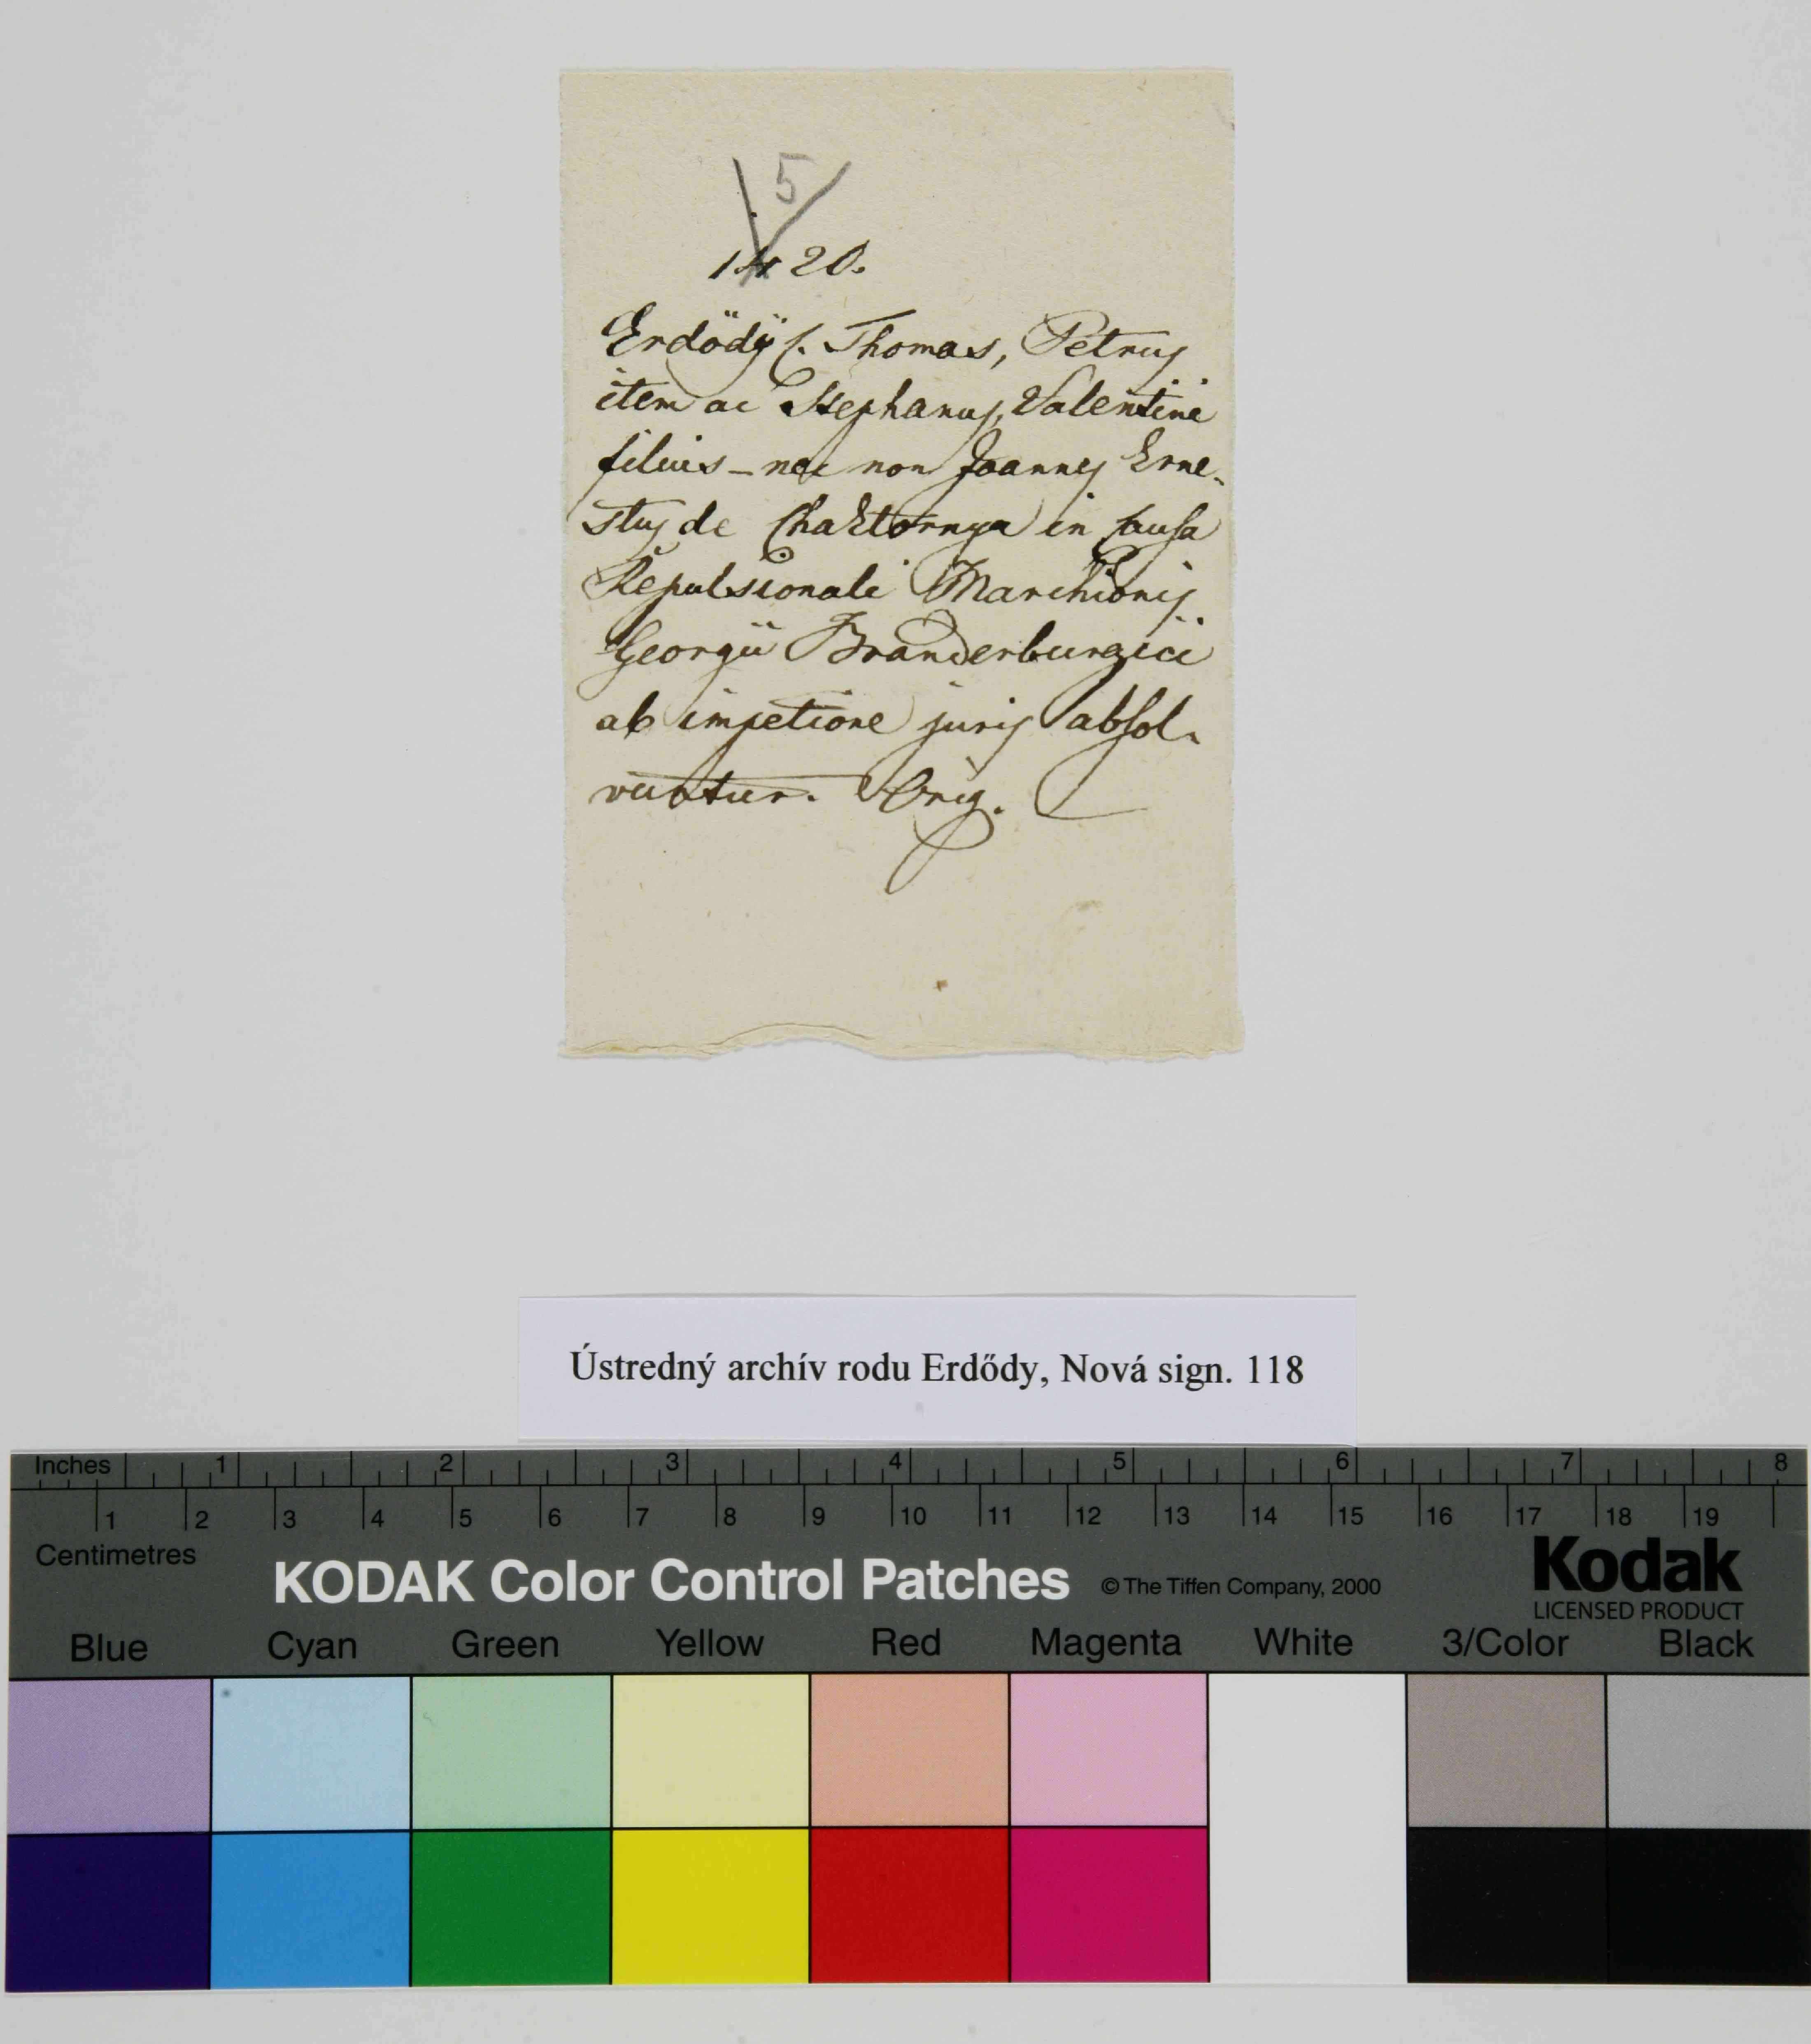 5
1420.
Erdödÿ C. Thomas, Petrus
item ac Stephanus, Valentini
filius – nec non Joannes Erne-
stus de Chaktornya in causa
Repulsionali Marchionis
Georgii Branderburgici
ab impetione juris absol-
vuntur. Orig.
Ústredný archív rodu Erdődy, Nová sign. 118
Inches 1 2 3 4 5 6 7 8
1 2 3 4 5 6 7 8 9 10 11 12 13 14 15 16 17 18 19
Centimetres
KODAK Color Control Patches © The Tiffen Company, 2000 Kodak
LICENSED PRODUCT
Blue Cyan Green Yellow Red Magenta White 3/Color Black